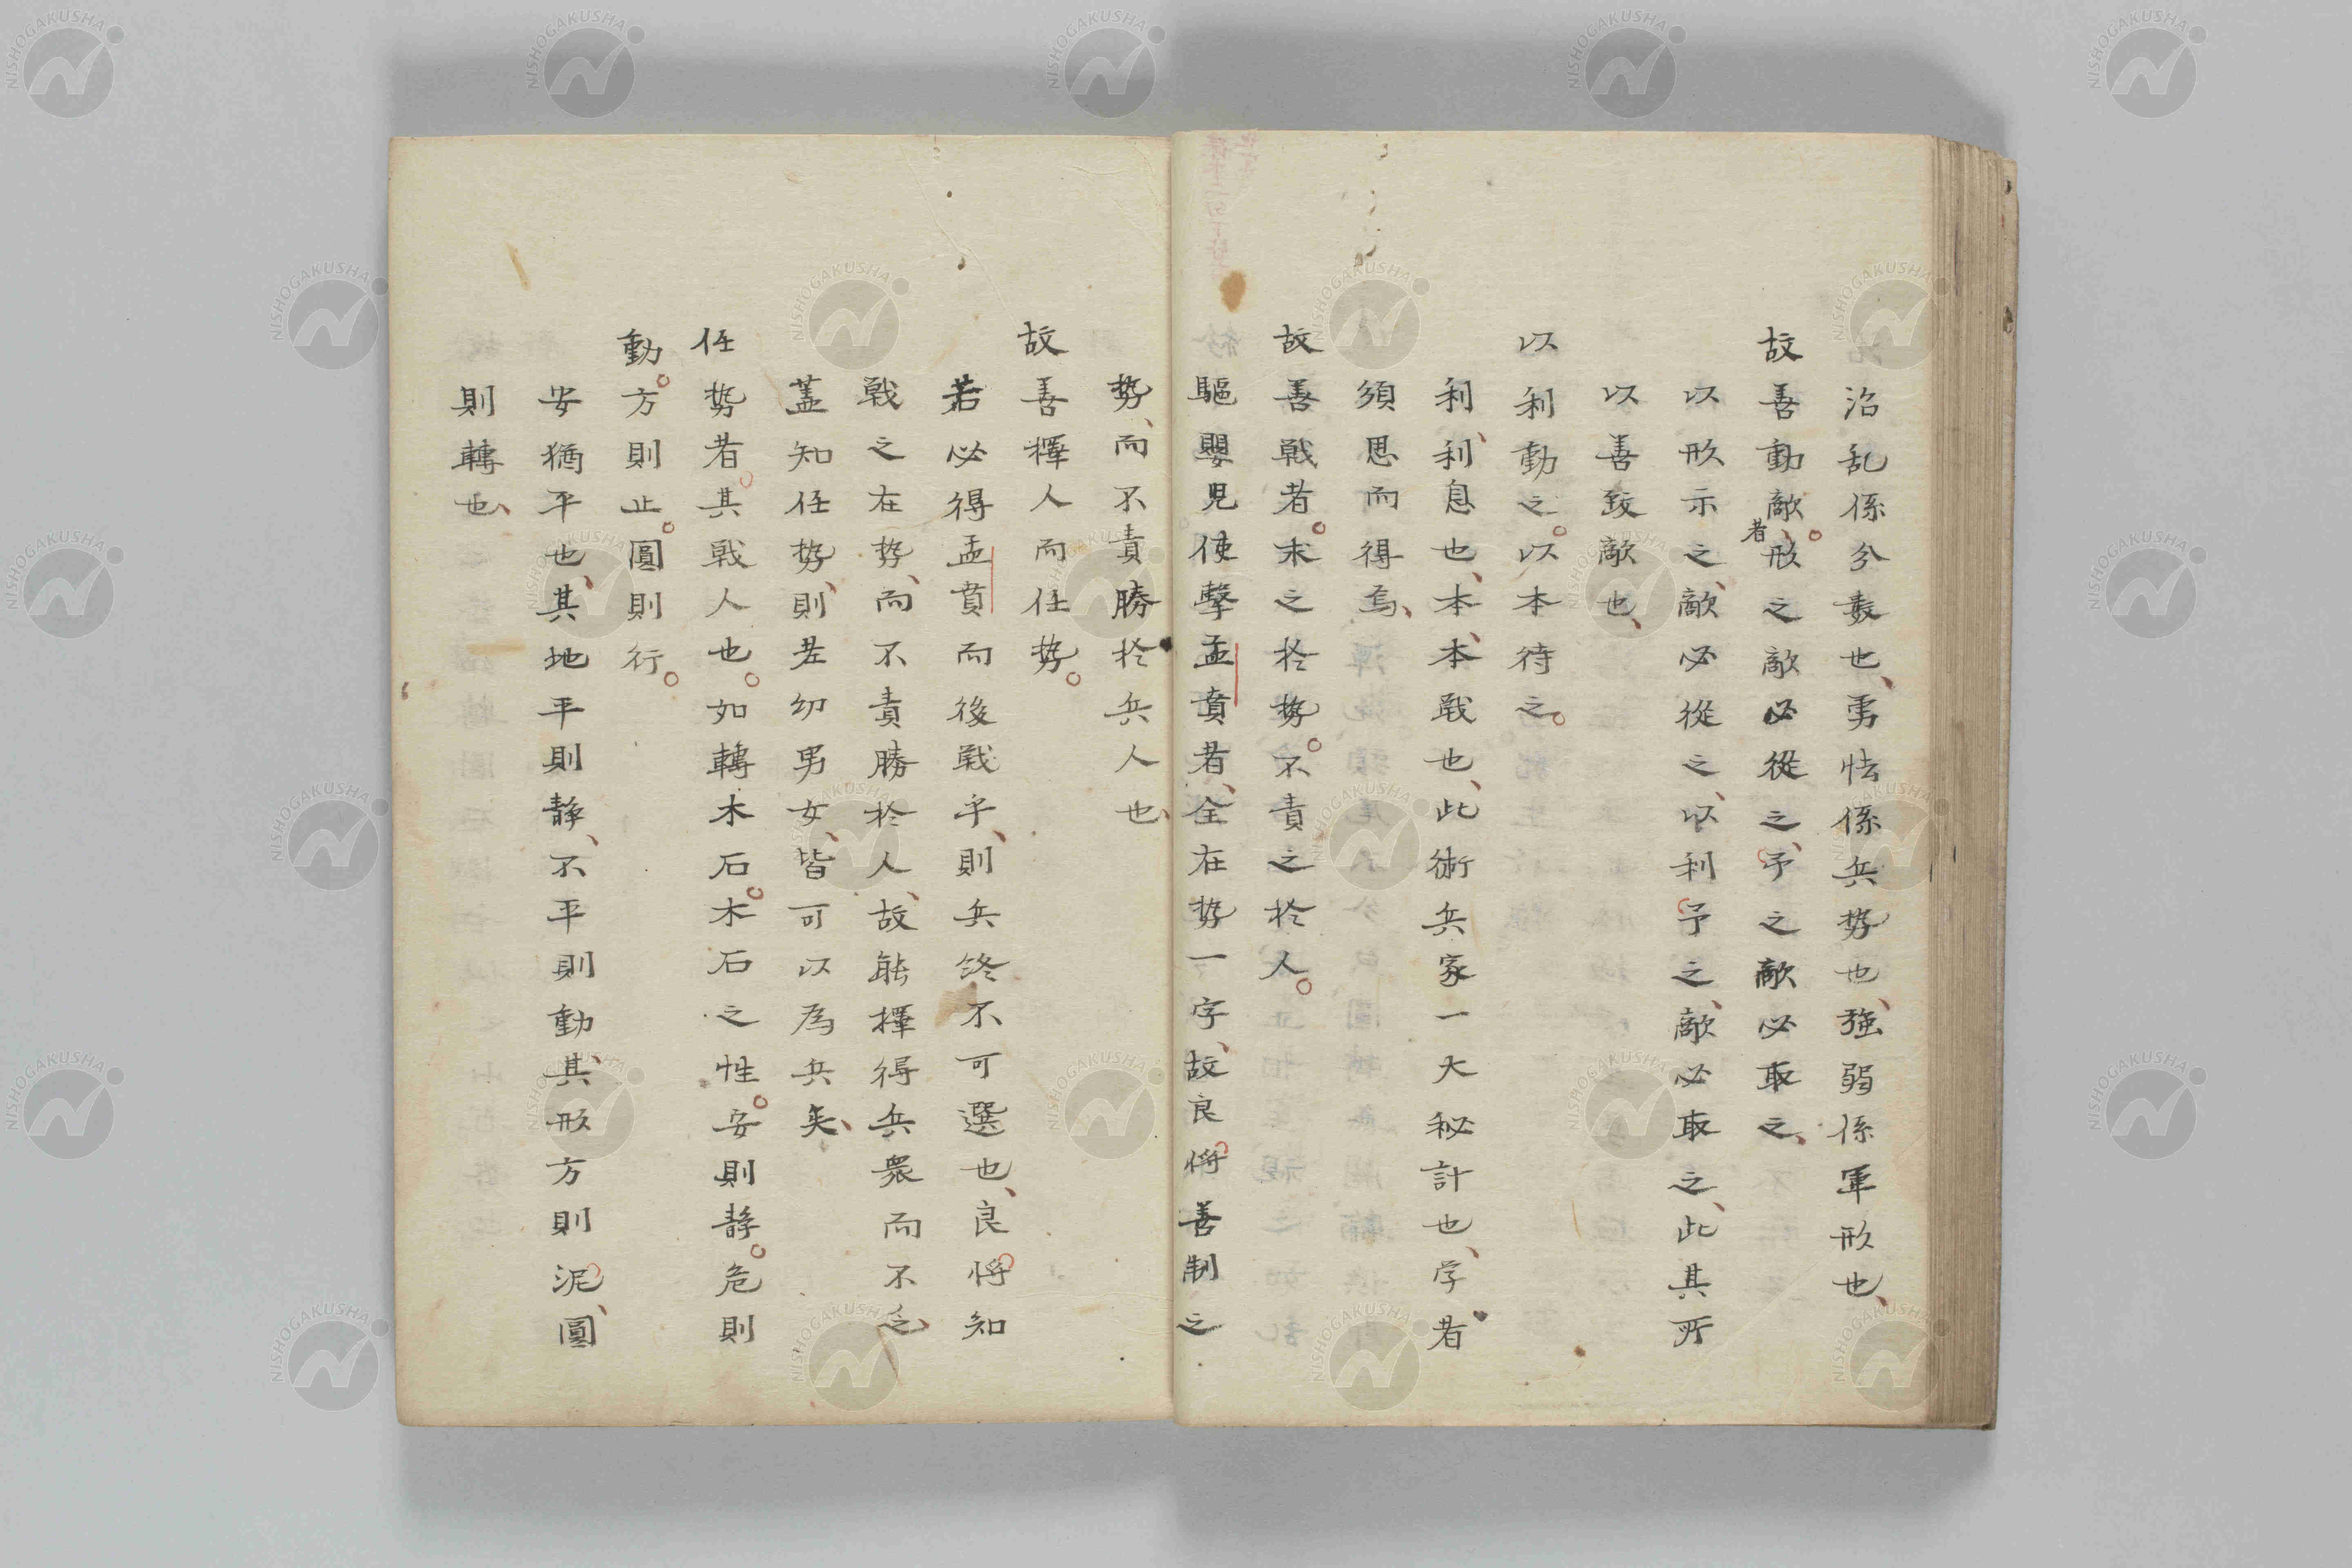 治乱係分数也勇怯係兵势也強弱係軍形也
故善動敵者形之敵必從之予之敵必取之
以形示之敵必從之以利予之敵必取之此其所
以善致敵也
以利動之以本待之
利利息也本本戦也此術兵家一大秘計也学者
須思而得焉
故善戦者求之於势不責之於人
驅嬰児使擊孟賁者全在势一字故良将善制之
势而不責勝於兵人也
故善擇人而任势
若必得孟賁而後戦乎則兵終不可選也良将知
戦之在势而不責勝於人故能擇得兵衆而不乏
蓋知任势則老幼男女皆可以為兵矣
任势者其戦人也如轉木石木石之性安則静危則
動方則止圓則行
安猶平也其地平則静不平則動其形方則泥圓
則轉也
NISHOGAKUSHA